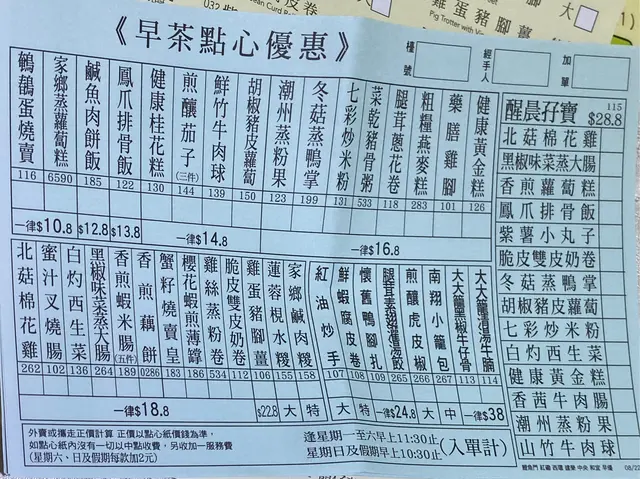 《早茶點心優惠》
檯號
經手人
加單
鵪鶉蛋燒賣 116
家鄉蒸蘿蔔糕 6590
鹹魚肉餅飯 185
鳳爪排骨飯 122
健康桂花糕 130
煎釀茄子(三件) 144
鮮竹牛肉球 139
胡椒豬皮蘿蔔 150
潮州蒸粉果 123
冬菇蒸鴨掌 199
七彩炒米粉 131
菜乾豬骨粥 533
腿茸蔥花卷 118
粗糧燕麥糕 283
藥膳雞腳 101
健康黃金糕 126
一律$10.8
$12.8
$13.8
一律$14.8
一律$16.8
北菇棉花雞 262
蜜汁叉燒腸 102
白灼西生菜 136
黑椒味菜蒸大腸 264
香煎蝦米腸(五件) 189
香煎藕餅 0286
蟹籽燒賣皇 183
櫻花蝦煎薄罉 186
雞絲蒸粉卷 534
脆皮雙皮奶卷 112
雞蛋豬腳薑 106
蓮蓉梘水糉 155
家鄉鹹肉糉 158
紅油炒手 107
鮮蝦腐皮卷 108
懷舊鴨腳扎 109
265
煎釀虎皮椒 266
南翔小籠包 267
大大籠黑椒牛仔骨 113
114
一律$18.8
$22.8
大
特
大
特
一律$24.8
大
中
一律$38
醒晨孖寶 115 $28.8
北菇棉花雞
黑椒味菜蒸大腸
香煎蘿蔔糕
鳳爪排骨飯
紫薯小丸子
脆皮雙皮奶卷
冬菇蒸鴨掌
胡椒豬皮蘿蔔
七彩炒米粉
白灼西生菜
健康黃金糕
香茜牛肉腸
潮州蒸粉果
山竹牛肉球
外賣或攜走正價計算 正價以點心紙價錢為準，
如點心紙內沒有一切以中點收費，另收加一服務費
(星期六、日及假期每款加2元)
逢星期一至六早上11:30止
星期日及假期早上10:30止
(入單計)
08/22
雞蛋豬腳薑
Pig Trotter with
大
032
皮卷